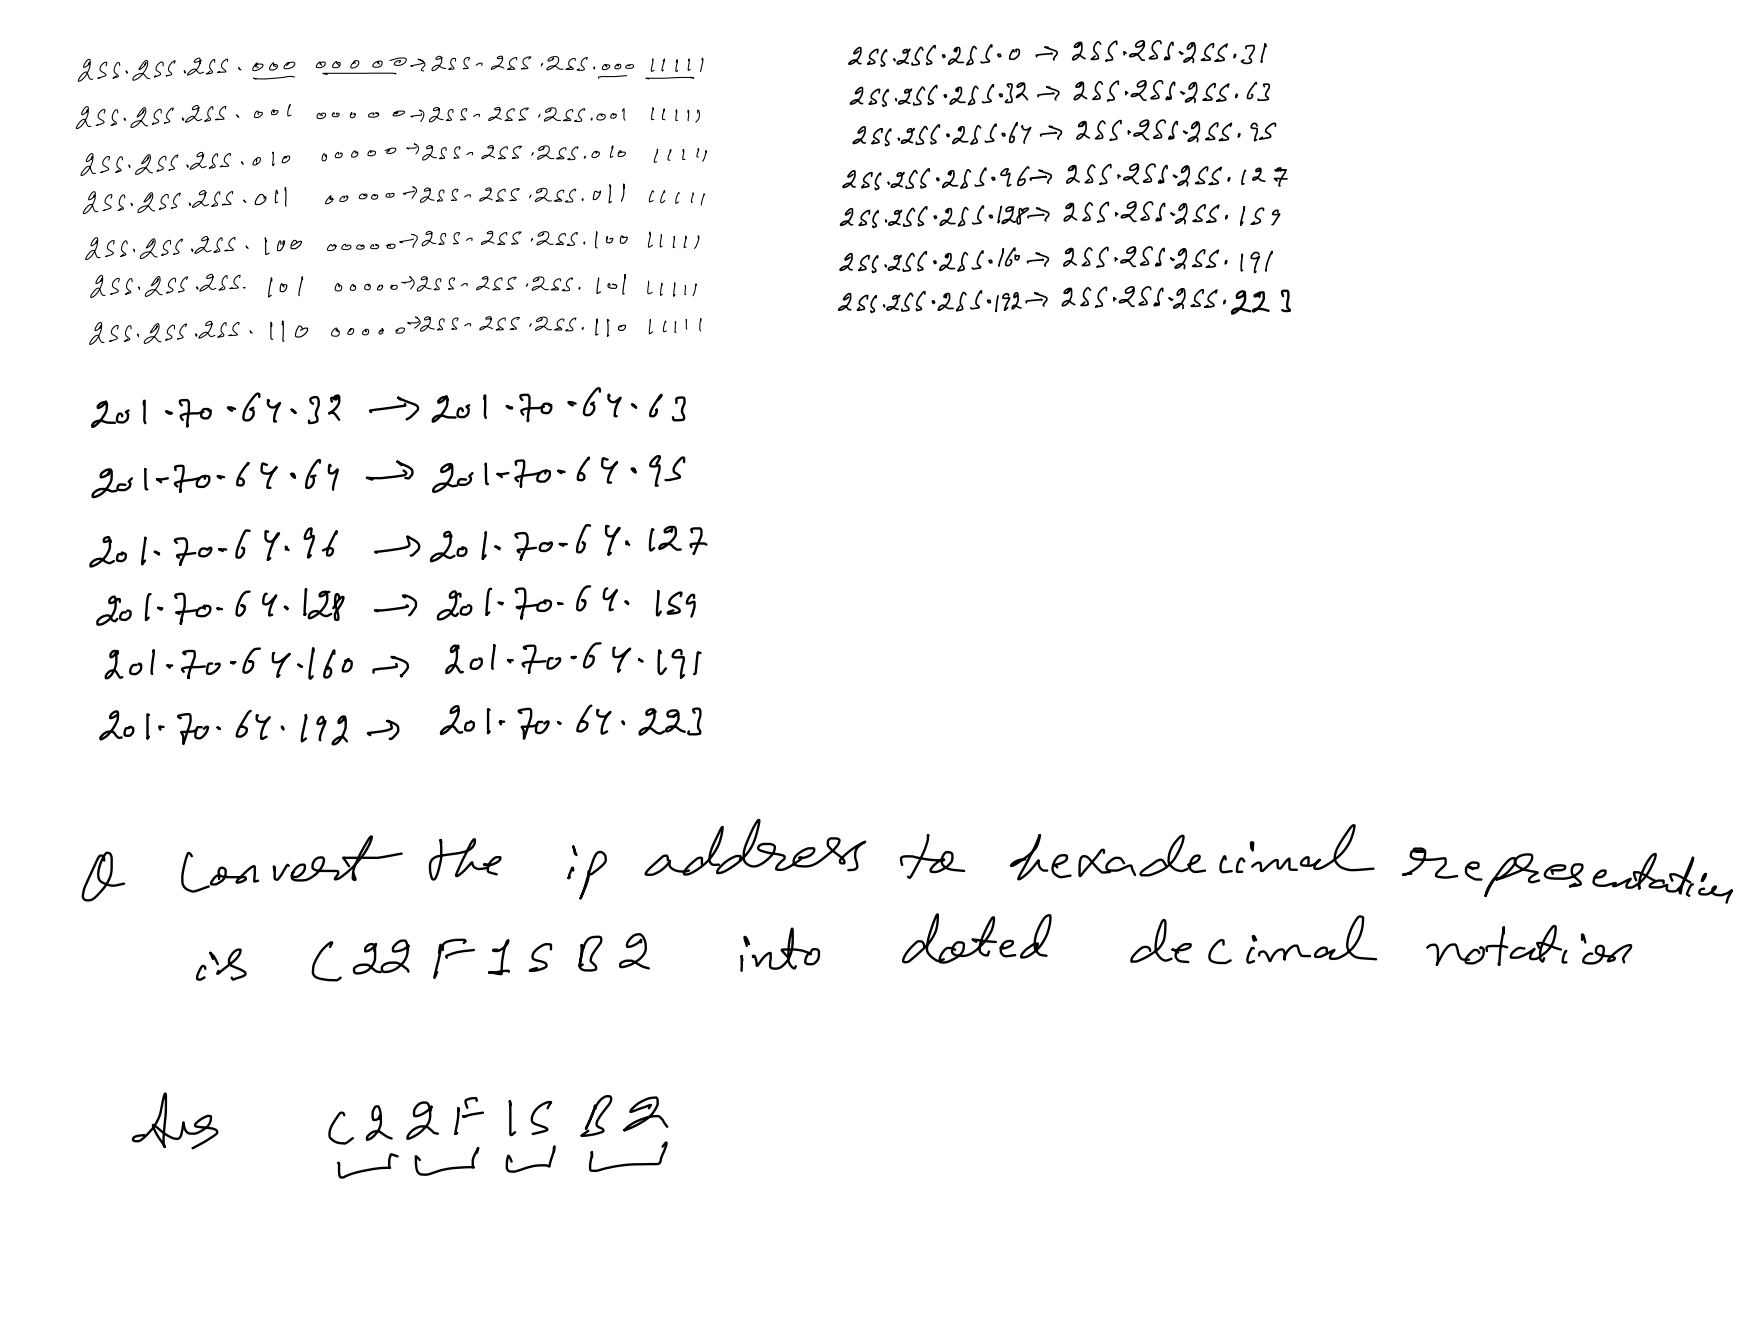 255.255.255.000 00000→255.255.255.000 11111
255.255.255.001 00000→255.255.255.001 11111
255.255.255.010 00000→255.255.255.010 11111
255.255.255.011 00000→255.255.255.011 11111
255.255.255.100 00000→255.255.255.100 11111
255.255.255.101 00000→255.255.255.101 11111
255.255.255.110 00000→255.255.255.110 11111
255.255.255.0 → 255.255.255.31
255.255.255.32 → 255.255.255.63
255.255.255.64 → 255.255.255.95
255.255.255.96 → 255.255.255.127
255.255.255.128 → 255.255.255.159
255.255.255.160 → 255.255.255.191
255.255.255.192 → 255.255.255.223
201.70.64.32 → 201.70.64.63
201.70.64.64 → 201.70.64.95
201.70.64.96 → 201.70.64.127
201.70.64.128 → 201.70.64.159
201.70.64.160 → 201.70.64.191
201.70.64.192 → 201.70.64.223
Q Convert the ip address to hexadecimal representation
is C22F15B2 into doted decimal notation
Ans C22F15B2